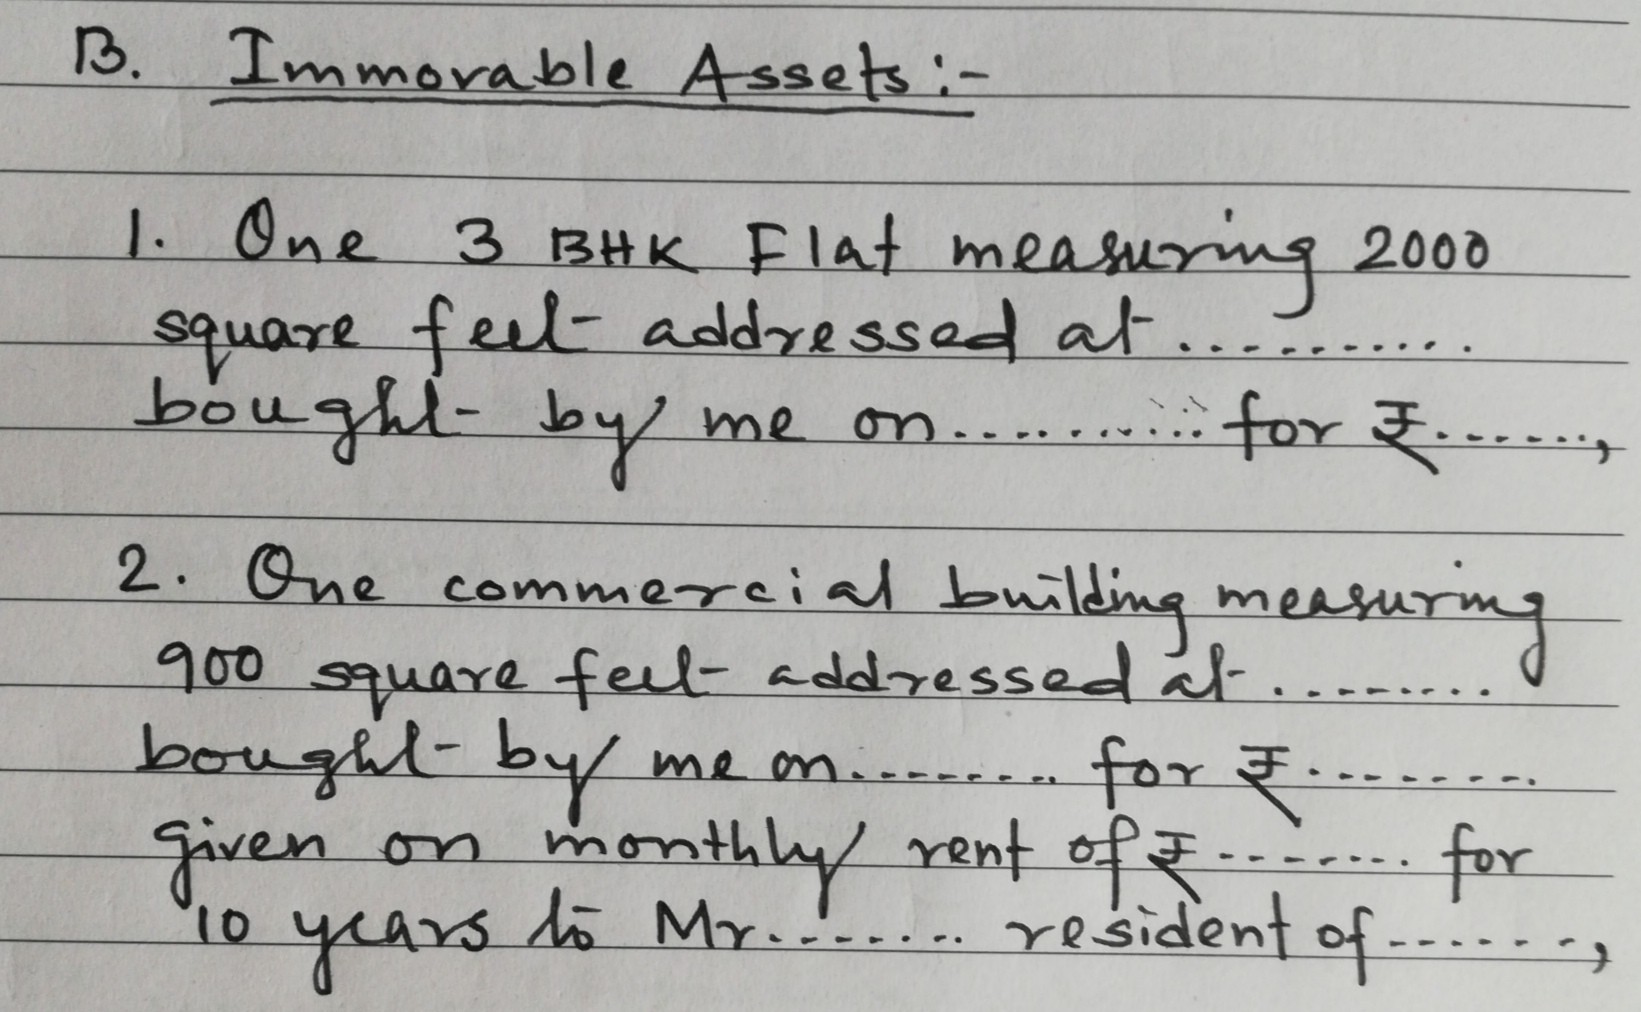 B. Immovable Assets:-
1. One 3 BHK Flat measuring 2000
square feet addressed at ...........
bought by me on............ for ₹.......,
2. One commercial building measuring
900 square feet addressed at .........
bought by me on......... for ₹.........
given on monthly rent of ₹........ for
10 years to Mr......... resident of .......,